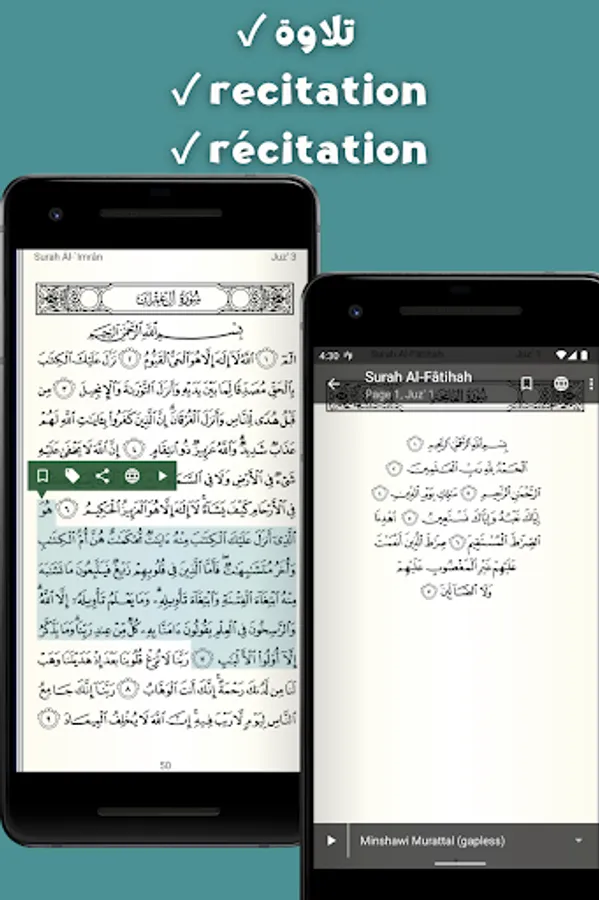 ✓ تلاوة
✓ recitation
✓ récitation
Surah Āl-`Imrân
Juz' 3
سُورَةُ آلِ عِمْرَانَ
بِسْمِ اللَّهِ الرَّحْمَٰنِ الرَّحِيمِ
الٓمٓ ١ اللَّهُ لَا إِلَٰهَ إِلَّا هُوَ الْحَىُّ الْقَيُّومُ ٢ نَزَّلَ عَلَيْكَ الْكِتَٰبَ
بِالْحَقِّ مُصَدِّقًا لِّمَا بَيْنَ يَدَيْهِ وَأَنزَلَ التَّوْرَىٰةَ وَالْإِنجِيلَ ٣ مِن
قَبْلُ هُدًى لِّلنَّاسِ وَأَنزَلَ الْفُرْقَانَ إِنَّ الَّذِينَ كَفَرُوا بِـَٔايَٰتِ اللَّهِ لَهُمْ
عَذَابٌ شَدِيدٌ وَاللَّهُ عَزِيزٌ ذُو انتِقَامٍ ٤ إِنَّ اللَّهَ لَا يَخْفَىٰ عَلَيْهِ
شَىْءٌ فِى الْأَرْضِ وَلَا فِى السَّمَ
فِى الْأَرْحَامِ كَيْفَ يَشَاءُ لَا إِلَٰهَ إِلَّا هُوَ الْعَزِيزُ الْحَكِيمُ ٦ هُوَ
الَّذِى أَنزَلَ عَلَيْكَ الْكِتَٰبَ مِنْهُ ءَايَٰتٌ مُّحْكَمَٰتٌ هُنَّ أُمُّ الْكِتَٰبِ
وَأُخَرُ مُتَشَٰبِهَٰتٌ فَأَمَّا الَّذِينَ فِى قُلُوبِهِمْ زَيْغٌ فَيَتَّبِعُونَ مَا تَشَٰبَهَ
مِنْهُ ابْتِغَاءَ الْفِتْنَةِ وَابْتِغَاءَ تَأْوِيلِهِ وَمَا يَعْلَمُ تَأْوِيلَهُ إِلَّا اللَّهُ
وَالرَّٰسِخُونَ فِى الْعِلْمِ يَقُولُونَ ءَامَنَّا بِهِ كُلٌّ مِّنْ عِندِ رَبِّنَا وَمَا يَذَّكَّرُ
إِلَّا أُولُوا الْأَلْبَٰبِ ٧ رَبَّنَا لَا تُزِغْ قُلُوبَنَا بَعْدَ إِذْ هَدَيْتَنَا وَهَبْ
لَنَا مِن لَّدُنكَ رَحْمَةً إِنَّكَ أَنتَ الْوَهَّابُ ٨ رَبَّنَا إِنَّكَ جَامِعُ
النَّاسِ لِيَوْمٍ لَّا رَيْبَ فِيهِ إِنَّ اللَّهَ لَا يُخْلِفُ الْمِيعَادَ ٩
50
4:30
Surah Al-Fātihah
Page 1, Juz' 1
بِسْمِ اللَّهِ الرَّحْمَٰنِ الرَّحِيمِ ١
الْحَمْدُ لِلَّهِ رَبِّ الْعَٰلَمِينَ ٢
الرَّحْمَٰنِ الرَّحِيمِ ٣ مَٰلِكِ يَوْمِ الدِّينِ ٤
إِيَّاكَ نَعْبُدُ وَإِيَّاكَ نَسْتَعِينُ ٥ اهْدِنَا
الصِّرَٰطَ الْمُسْتَقِيمَ ٦ صِرَٰطَ الَّذِينَ أَنْعَمْتَ
عَلَيْهِمْ غَيْرِ الْمَغْضُوبِ عَلَيْهِمْ
وَلَا الضَّالِّينَ ٧
Minshawi Murattal (gapless)